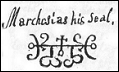 Marchosias his seal.